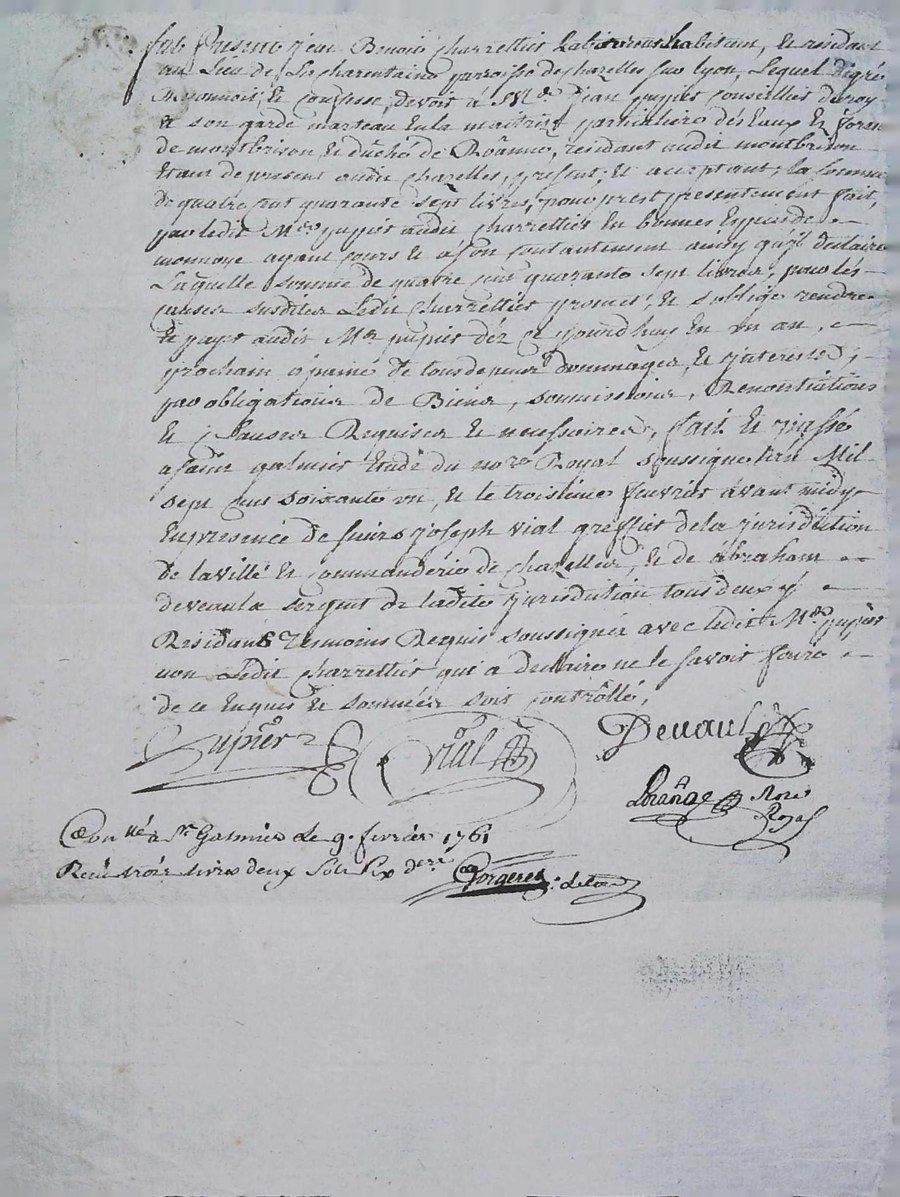 fut Present jean Benoit Charrettier Laboureur habitant, et residant
au Lieu de La charentaine parroisse de chazelles sur lyon, Lequel degré
Reconnoit, et confesse, devoir à Me jean pupier conseiller du roy
et son garde marteau En la maitrise particuliere des Eaux et forets
de montbrison, et duché de Roanne, residant audit montbrison
Etant de present audit chazelles, present, et acceptant, la somme
de quatre cent quarante sept livres, pour prest presentement fait,
par ledit Mre pupier audit Charrettier En bonnes Especes de
monnoye ayant cours et à son contantement ainsy qu'il declaire
Laquelle somme de quatre cent quarante sept livres, pour les
causes susdites Ledit Charrettier promet, et s'oblige rendre
et payer audit Mre pupier déz ce jourdhuy En un an,
prochain à paine de tous depens dommages, et jnterests,
par obligations de Biens, soumissions, Renontiations
et Clauses Requises et necessaires, fait et passé
a saint galmier Etude du nore Royal soussigné Lan Mil
sept cent soixante un, et le troisieme fevrier avant midy
En presence de sieurs joseph vial greffier de la jurisdiction
de la ville et commanderie de chazelles, et de abraham
deveaula sergent de ladite jurisdiction tous deux y
Residants Temoins Requis soussignés avec ledit Mre pupier
non Ledit Charrettier qui a declairé ne le savoir faire
de ce Enquis et sommé soit controllé,
Pupier Vial Devaula
Lorange Nore
Royal
Con llé à St Galmier Le 9e fevrier 1761
Receu trois livres deux sols six deniers